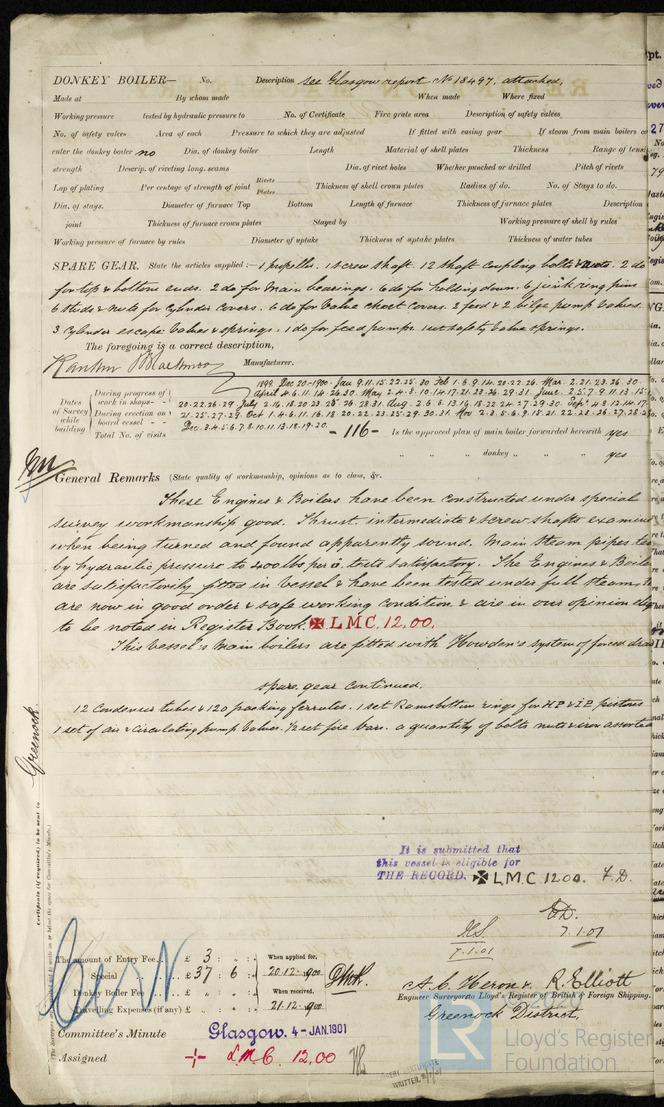 DONKEY BOILER— No. Description see Glasgow report No 18497, attached.
Made at By whom made When made Where fixed
Working pressure tested by hydraulic pressure to No. of Certificate Fire grate area Description of safety valves
No. of safety valves Area of each Pressure to which they are adjusted If fitted with easing gear If steam from main boilers c
enter the donkey boiler no Dia. of donkey boiler Length Material of shell plates Thickness Range of tensi
strength Descrip. of riveting long. seams Dia. of rivet holes Whether punched or drilled Pitch of rivets
Lap of plating Per centage of strength of joint Rivets Plates Thickness of shell crown plates Radius of do. No. of Stays to do.
Dia. of stays. Diameter of furnace Top Bottom Length of furnace Thickness of furnace plates Description
joint Thickness of furnace crown plates Stayed by Working pressure of shell by rules
Working pressure of furnace by rules Diameter of uptake Thickness of uptake plates Thickness of water tubes
SPARE GEAR. State the articles supplied:— 1 propeller. 1 screw shaft. 12 shaft coupling bolts & nuts. 2 do
for top & bottom ends. 2 do for main bearings. 6 do for holding down. 6 junk ring pins
6 studs & nuts for cylinder covers. 6 do for valve chest covers. 2 feed & 2 bilge pump valves
3 cylinder escape valves & springs. 1 do for feed pumps 1 set safety valve springs.
The foregoing is a correct description,
Rankin & Blackmore Manufacturer.
Dates of Survey while building
During progress of work in shops- -
During erection on board vessel - -
Total No. of visits
1899. Dec 20 - 1900 - Jan 9. 11. 15. 22. 25. 30 Feb 1. 6. 9. 14. 20. 22. 26 Mar 2. 21. 23. 26. 30
April 4. 6. 11. 14. 26. 30 May 2. 4. 8. 10. 14. 17. 21. 23. 26. 29. 31 June 2. 5. 7. 9. 11. 13. 15
20. 22. 26. 29 July 2. 16. 18. 20. 23. 25. 26. 28. 31 Aug 2. 6. 8. 13. 16. 18. 22. 24. 27. 29. 30 Sept 4. 8. 13. 14. 17
21. 25. 27. 29. Oct 1. 4. 6. 11. 16. 18. 20. 22. 23. 25. 29. 30. 31 Nov 2. 3. 5. 6. 9. 15. 21. 22. 23. 26. 27. 28
Dec 3. 4. 5. 6. 7. 8. 10. 11. 13. 18. 19. 20. - 116 - Is the approved plan of main boiler forwarded herewith yes
" " " donkey " " " yes
General Remarks (State quality of workmanship, opinions as to class, &c.
These Engines & Boilers have been constructed under special
survey workmanship good. Thrust, intermediate & screw shafts examine
when being turned and found apparently sound. Main steam pipes tes
by hydraulic pressure to 400 lbs per □. tests satisfactory. The Engines & Boile
are satisfactorily fitted in vessel & have been tested under full steam,
are now in good order & safe working condition & are in our opinion elig
to be noted in Register Book. ✠ L.M.C. 12,00.
This vessel's main boilers are fitted with Howden's system of forced dra
spare gear continued.
12 condenser tubes & 120 packing ferrules. 1 set Ramsbottom rings for HP & IP pistons
1 set of air & circulating pump valves. ½ set fire bars. a quantity of bolts nuts & iron assorted
Certificate (if required) to be sent to Greenock
It is submitted that
this vessel is eligible for
THE RECORD. ✠ L.M.C. 12.00. F.D.
7.1.01
7.1.01
The amount of Entry Fee.. £ 3 : " : " When applied for,
Special £ 37 : 6 : 20.12.900
Donkey Boiler Fee £ " : " : " When received,
Travelling Expenses (if any) £ " : " : " 21.12.900
A. C. Heron & R. Elliott
Engineer Surveyors to Lloyd's Register of British & Foreign Shipping.
Greenock District.
Committee's Minute Glasgow. 4-JAN.1901
Assigned + L.M.C. 12,00
CERTIFICATE
WRITTEN
LR Lloyd's Register
Foundation